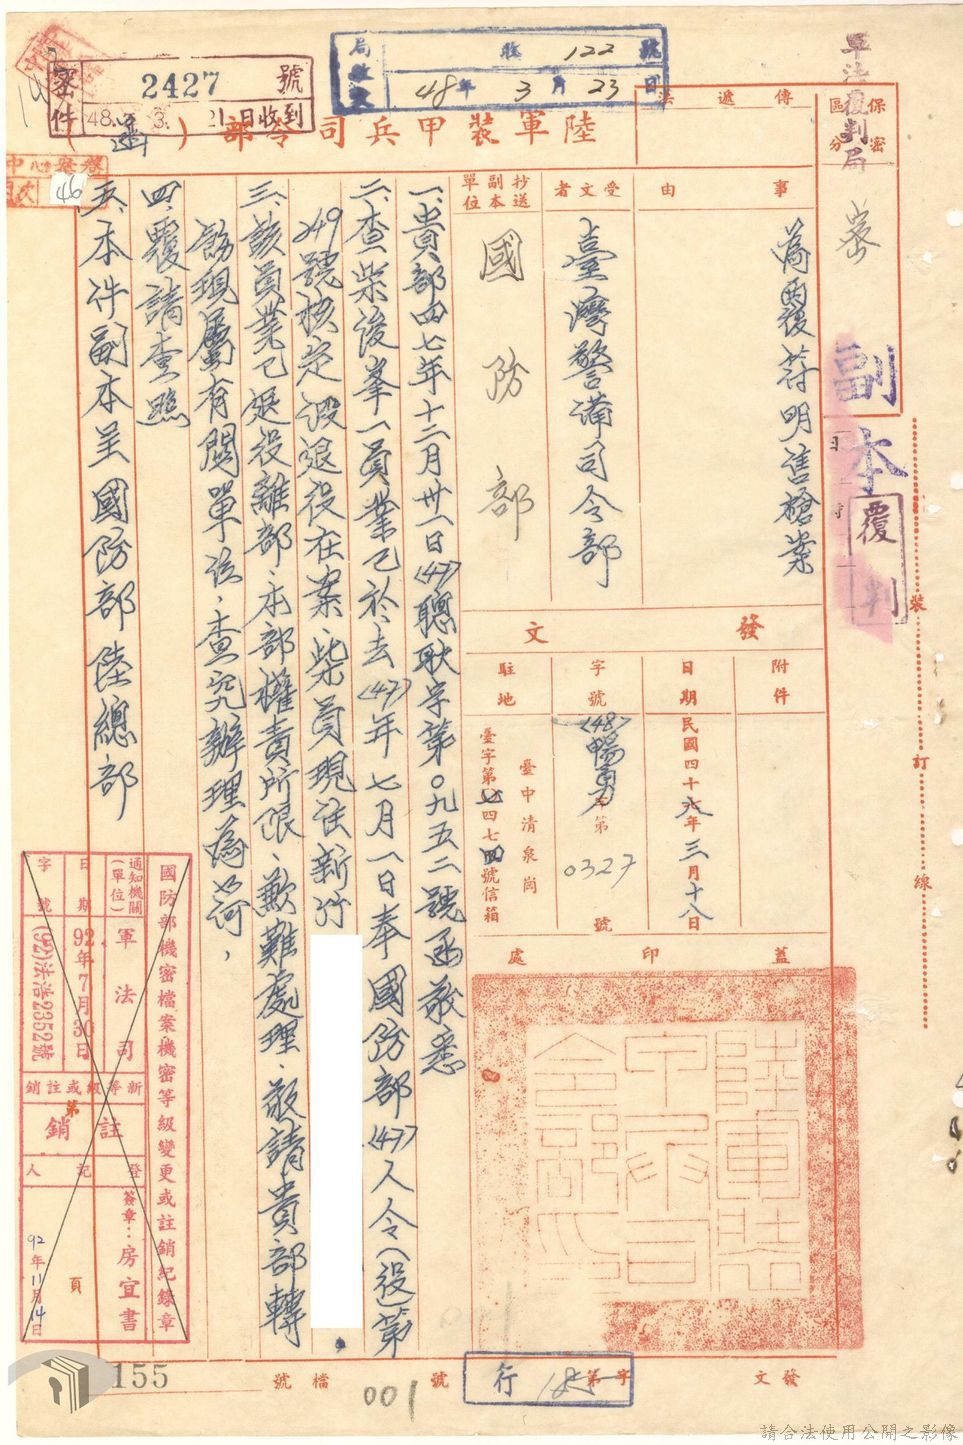 軍法覆判局
保密區分
密
副本
覆判
傳遞法
陸軍裝甲兵司令部（函）
事由
為覆苻明售槍案
受文者
臺灣警備司令部
抄送副本單位
國防部
發文
附件
日期
民國四十八年三月十八日
字號
(48)暢勇字第0327號
駐地
臺中清泉崗
臺字第四七號信箱
蓋印處
一、貴部四七年十二月廿一日(47)聽耿字第〇九五二號函敬悉
二、查柴俊峯一員業已於去(47)年七月一日奉國防部(47)人令(役)第
249號核定退役在案、柴員現住新竹
三、該員業已退役離部、本部權責所限、歉難處理、敬請貴部轉
飭現屬有關單位，查究辦理為荷，
四、覆請查照
五、本件副本呈國防部陸總部
密件
2427號
48. 3. 21日收到
局收文
收122號
48年3月23日
46
國防部機密檔案機密等級變更或註銷紀錄章
通知機關(單位)
軍法司
日期
92年7月30日
字號
(92)法浩2352號
新等級或註銷
註銷
登記人
簽章：房宜書
92年11月14日
第
頁
裝
訂
線
155
檔號
001
號
行
185
字第
發文
請合法使用公開之影像